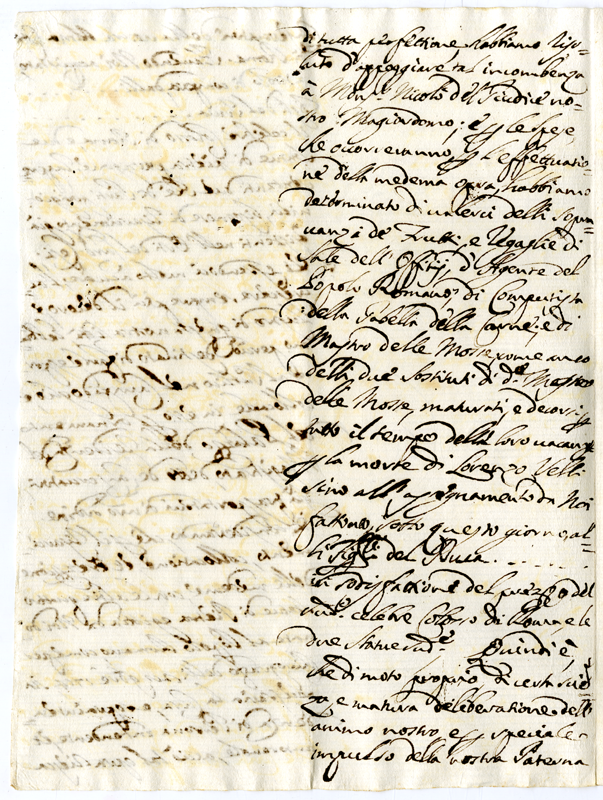 di tutta perfettione habbiamo riso=
luto d'appoggiare tal incombenza
à Mons.r Nicolò del Giudice no=
stro Magiordomo; e p le spese,
che occorreranno p l'effettuatio=
ne della medema opra, habbiamo
determinato di valerci delli sopra=
uanzi de' Frutti, e Regaglie di
Sale dell'Offitij, d'Agente del
Popolo Romano, di Computista
della Gabella della Carne, e di
Mastro delle Mosse, come anco
delli due sostituti di d.o Mastro
delle Mosse, maturati, e decorsi
tutto il tempo della loro uacanza
p la morte di Lorenzo Velli
sino all'assegnamento da Noi
fattone, sotto questo giorno, al=
li figli del Duca . . . . . .
in sodisfattione del prezzo del
sud.o celebre Colosso di Roma, e le
due Statue sud.e Quindi è,
che di moto proprio, di certa scien
za, e matura deliberatione dell'
animo nostro, e p speciale
impulso della nostra Paterna